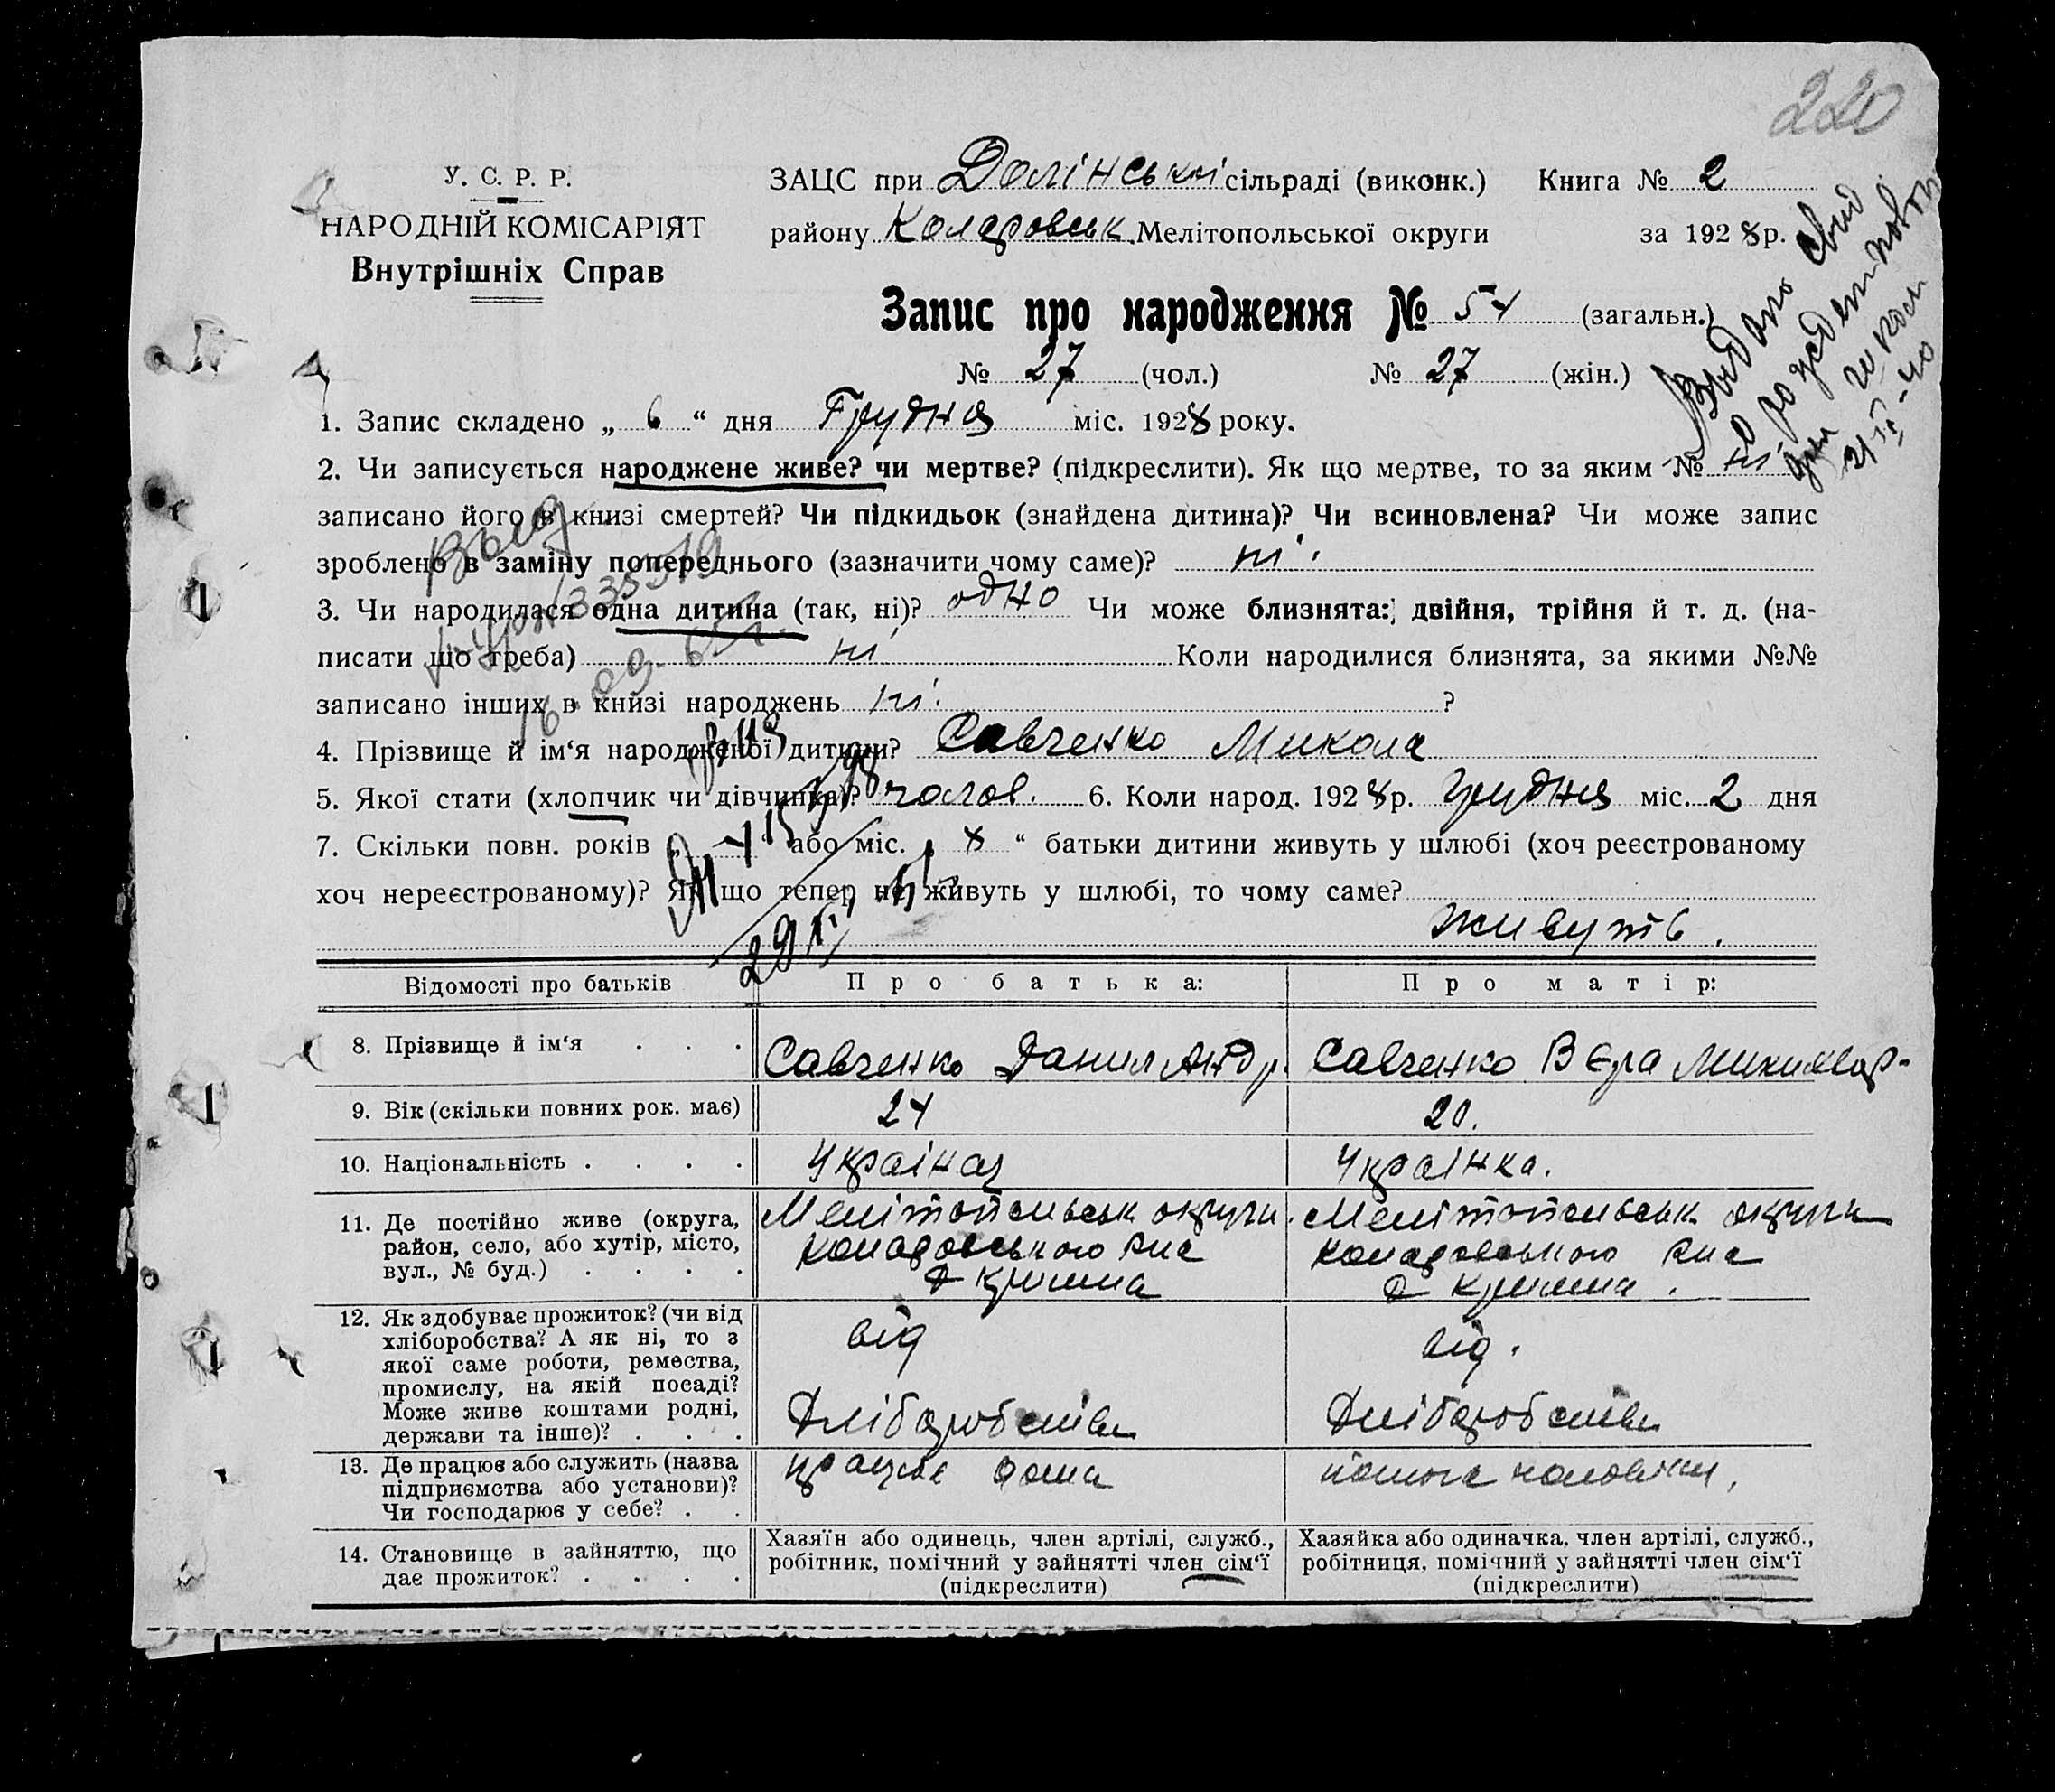 220
У. С. Р. Р.
НАРОДНІЙ КОМІСАРІЯТ
Внутрішніх Справ
ЗАЦС при Долінській сільраді (виконк.) Книга № 2
району Коларовськ. Мелітопольської округи за 1928 р.
Запис про народження № 54 (загальн.)
№ 27 (чол.) № 27 (жін.)
Выдано свид
о рождении повтор
для школи
21/II-40
1. Запис складено „ 6 “ дня Грудня міс. 1928 року.
2. Чи записується народжене живе? чи мертве? (підкреслити). Як що мертве, то за яким № ні
записано його в книзі смертей? Чи підкидьок (знайдена дитина)? Чи всиновлена? Чи може запис
зроблено в заміну попереднього (зазначити чому саме)? ні.
3. Чи народилася одна дитина (так, ні)? одно Чи може близнята: двійня, трійня й т. д. (на-
писати що треба) ні Коли народилися близнята, за якими №№
записано інших в книзі народжень ні. ?
4. Прізвище й ім‘я народженої дитини? Савченко Микола
5. Якої стати (хлопчик чи дівчинка)? чолов. 6. Коли народ. 1928 р. грудня міс. 2 дня
7. Скільки повн. років „ “ або міс. „ 8 “ батьки дитини живуть у шлюбі (хоч реєстрованому
хоч нереєстрованому)? Як що тепер не живуть у шлюбі, то чому саме?
живуть.
Відомості про батьків Про батька: Про матір:
8. Прізвище й ім‘я . . . Савченко Данил Андр. Савченко Вєра
9. Вік (скільки повних рок. має) 24 20.
10. Національність . . . . Українец Українка.
11. Де постійно живе (округа,
район, село, або хутір, місто,
вул., № буд.) . . . .
Мелітопольськ округи
Коларовського р-на
Мелітопольськ округи
Коларовського р-на
12. Як здобуває прожиток? (чи від
хліборобства? А як ні, то з
якої саме роботи, ремества,
промислу, на якій посаді?
Може живе коштами родні,
держави та інше)? . . .
від
Хліборобства
від.
Хліборобства
13. Де працює або служить (назва
підприємства або установи)?
Чи господарює у себе? . .
працює дома
14. Становище в зайняттю, що
дає прожиток? . . . .
Хазяїн або одинець, член артілі, служб.,
робітник, помічний у зайнятті член сім‘ї
(підкреслити)
Хазяйка або одиначка, член артілі, служб.,
робітниця, помічний у зайнятті член сім‘ї
(підкреслити)